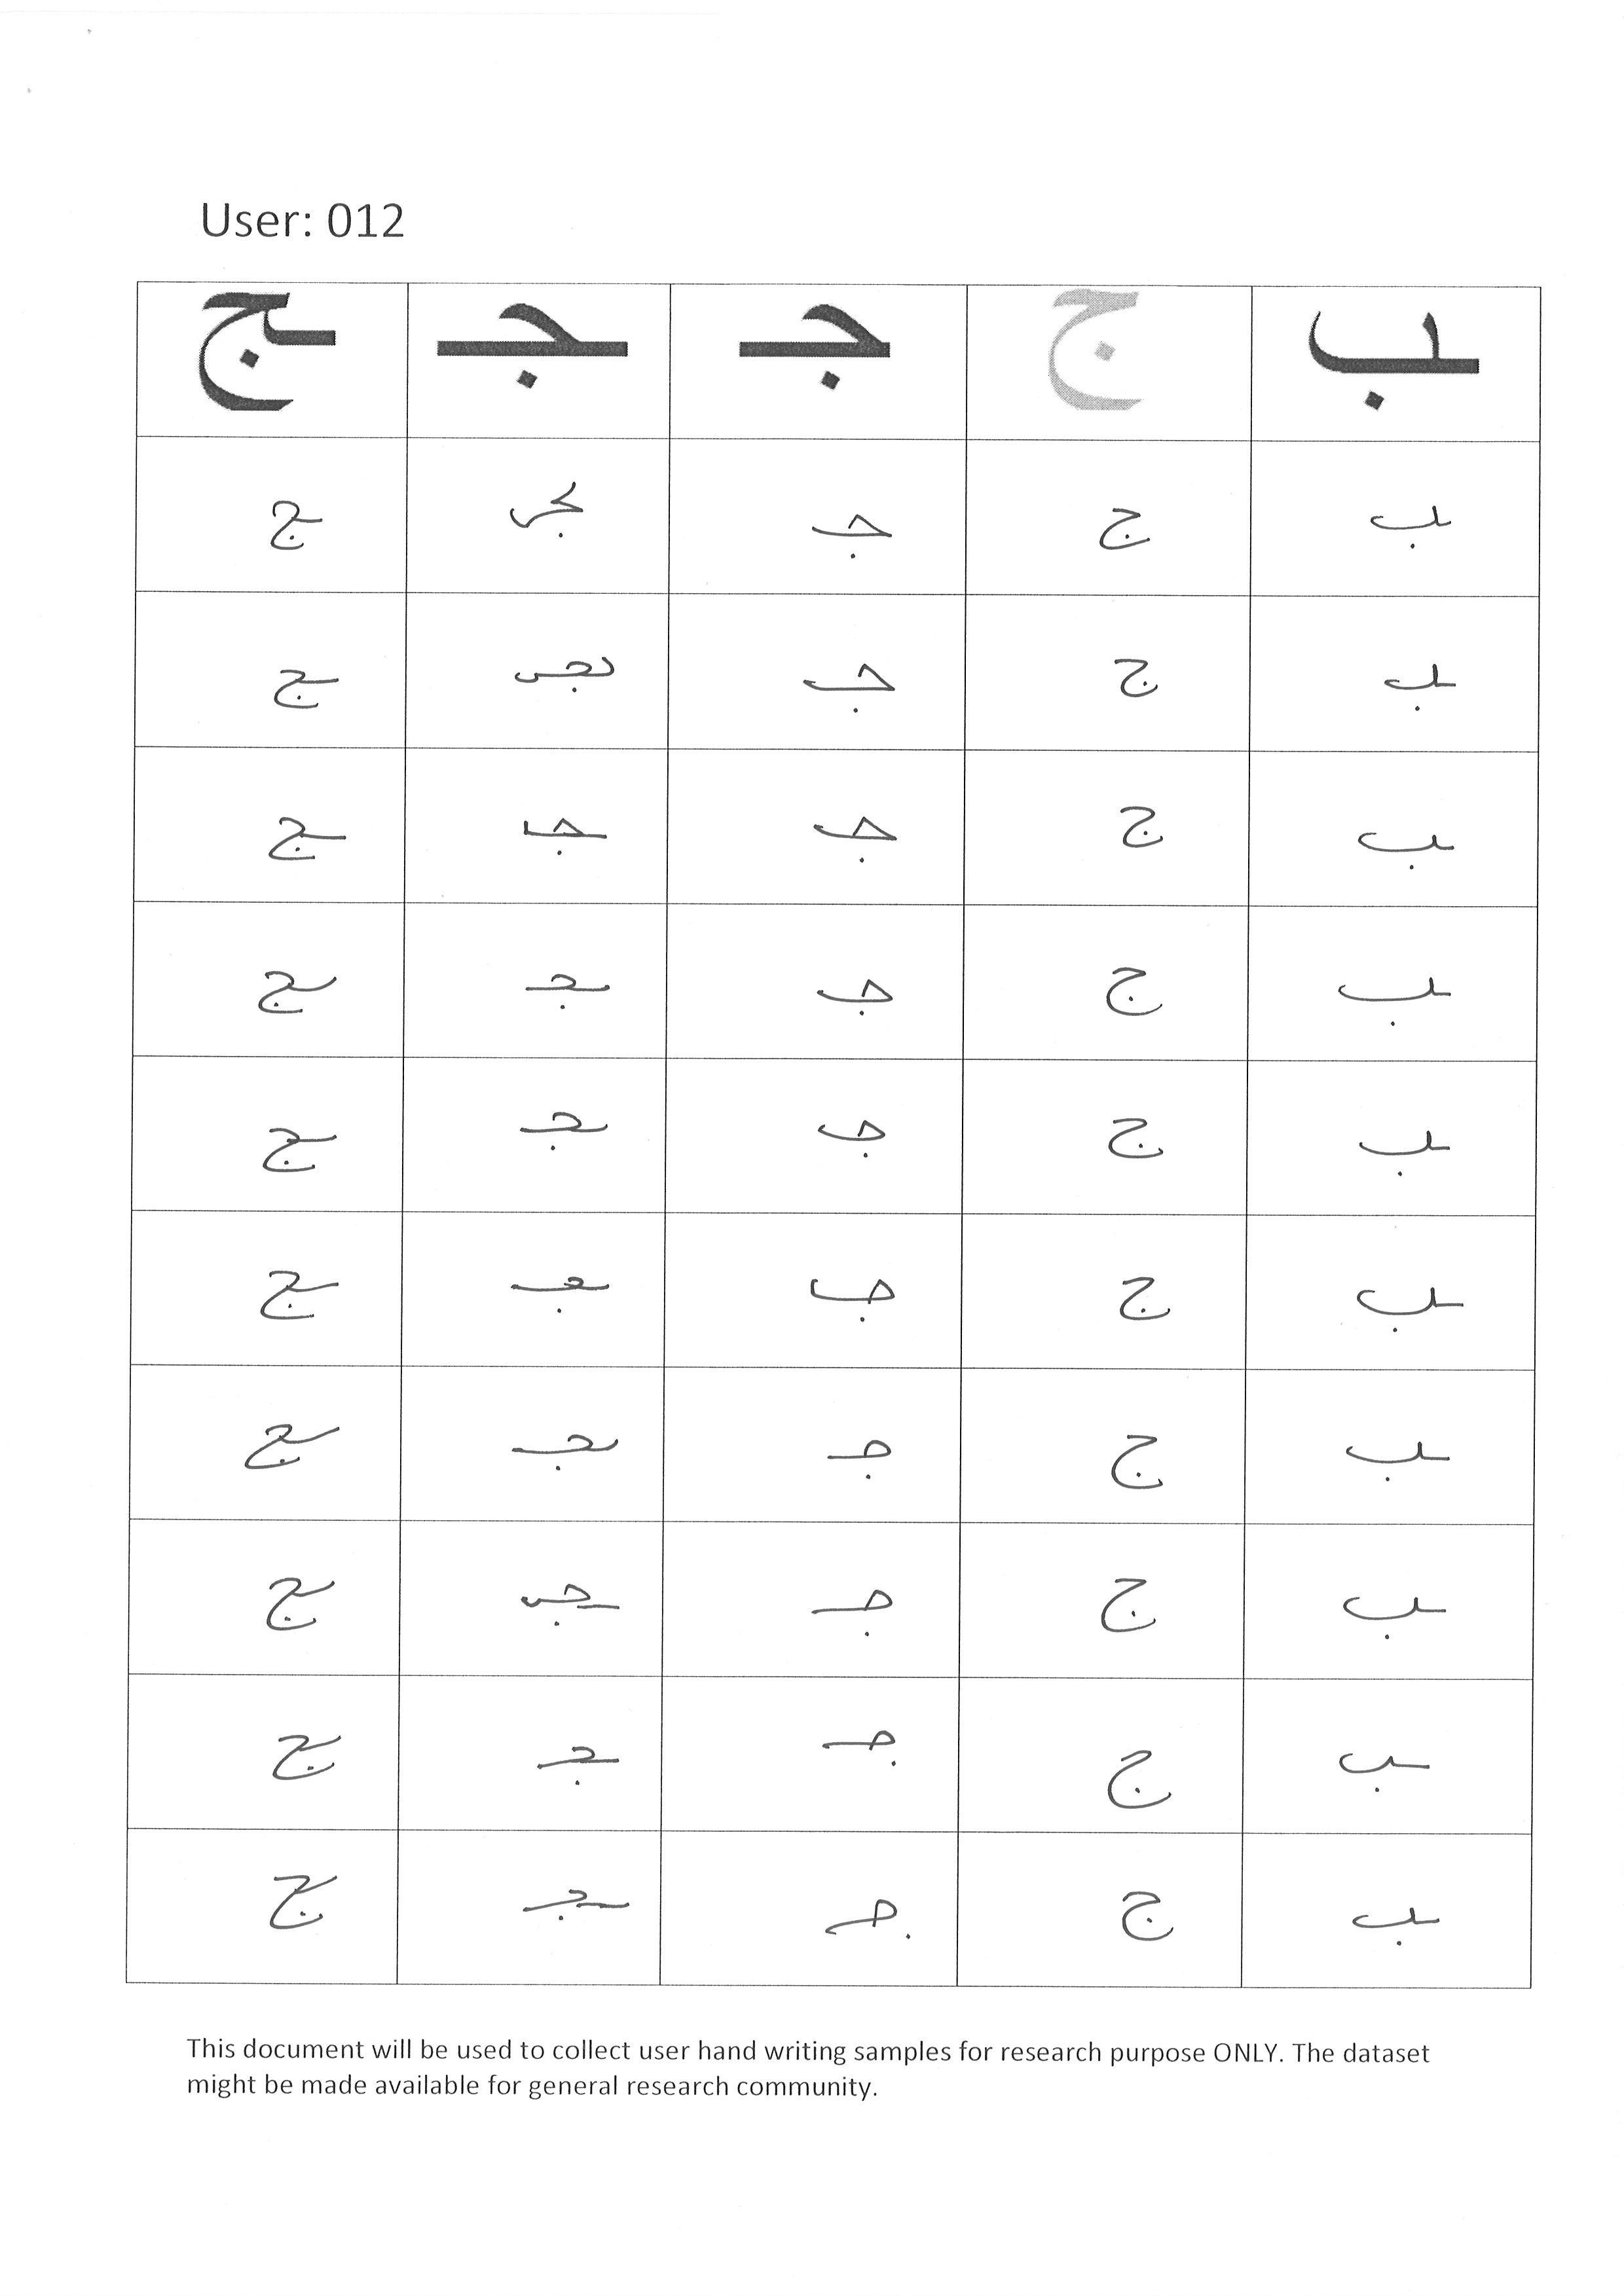 User: 012
ـب ج جـ ـجـ ـج
ـب ج جـ ـجـ ـج
ـب ج جـ ـجـ ـج
ـب ج جـ ـجـ ـج
ـب ج جـ ـجـ ـج
ـب ج جـ ـجـ ـج
ـب ج جـ ـجـ ـج
ـب ج جـ ـجـ ـج
ـب ج جـ ـجـ ـج
ـب ج جـ ـجـ ـج
ـب ج جـ ـجـ ـج
This document will be used to collect user hand writing samples for research purpose ONLY. The dataset
might be made available for general research community.